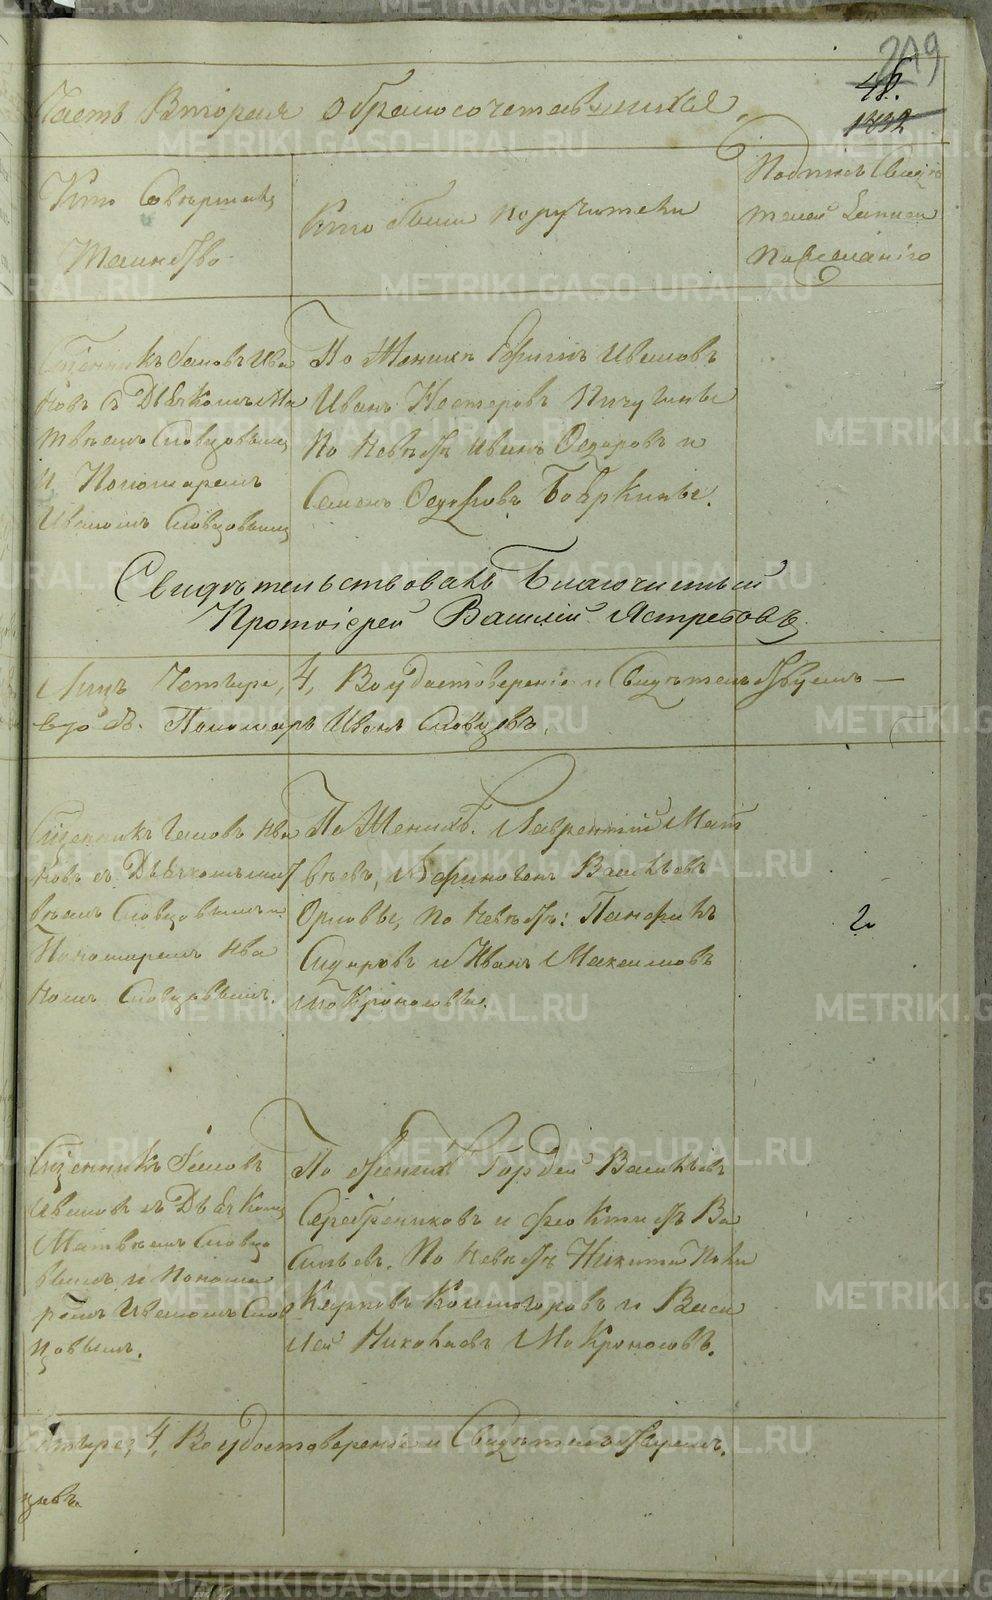 219
48.
1832
Часть Вторая о бракосочетавшихся
Кто Совершалъ
Таинство
Кто были поручители
Подписъ Свидѣ
телей Записи
по Желанію
Сщенникъ Іаковъ Ива
новъ съ Дьячкомъ Ма
твѣемъ Словцовымъ
и Пономаремъ
Иваномъ Словцовымъ
По Женихѣ Ефимъ Ивановъ
Иванъ Нестеровъ Пичугины
По Невѣстѣ Иванъ Ѳедоровъ и
Семенъ Ѳедоровъ Бобркины.
Свидѣтельствовалъ Благочинный
Протоіерей Василій Ястребовъ
Лицъ Четыре, 4, Во удостовереніе и Свидѣтельствуемъ —
Пономарь Иванъ Словцовъ.
Сщенникъ Іаковъ Ива
новъ съ Дьячкомъ Мат
вѣемъ Словцовымъ и
Пономаремъ Ива
номъ Словцовымъ.
По Женихѣ: Лаврентий Мат
вѣевъ, Афиногенъ Васильевъ
Орловы, по невѣстѣ: Панфилъ
Сидоровъ и Иванъ Максимовъ
Мокроносовы.
2
Сщенникъ Іаковъ
Ивановъ съ Дьячкомъ
Матвѣемъ Словцо
вымъ и понома
ремъ Иваномъ Слов
цовымъ.
По Женихѣ Гордей Васильевъ
Серебрениковъ и Феоктистъ Ва
сильевъ. По невѣстѣ Никита
Колмогоровъ и Васи
лей Николаевъ Мокроносовъ.
четыре, 4, Во удостовереніе и Свидѣтельствуемъ.
цовъ
METRIKI.GASO-URAL.RU